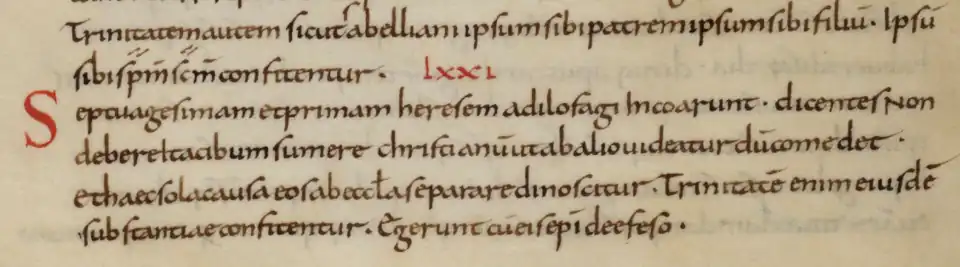 Trinitatem autem sicut sabelliani ipsum sibi patrem ipsum sibi filiū · Ipsū
sibi sp̄m sc̄m confitentur · lxxi
Septuagesimam et primam heresem adilofagi Incoarunt · dicentes Non
debere ita cibum sumere christianū ut ab alio uideatur dū comedet ·
et haec sola causa eos ab eccl̄a separare dinoscitur · Trinitatē enim eiusdē
substantiae confitentur · Egerunt cū eis epī de efeso ·